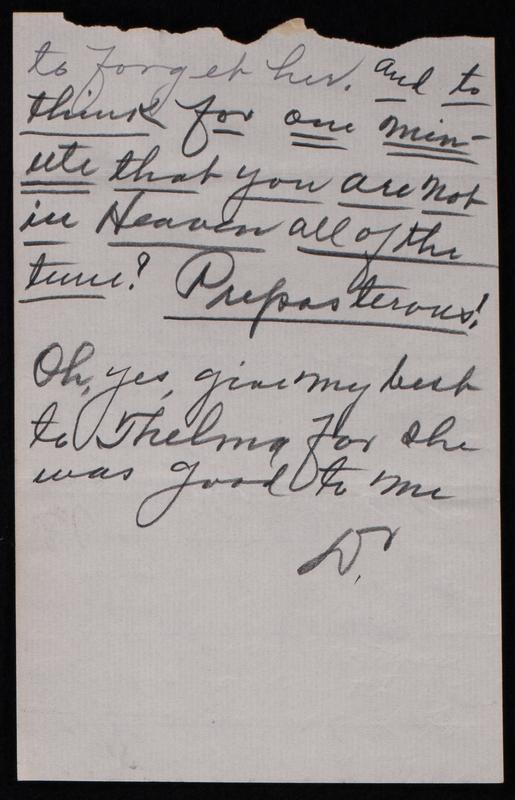 to forget her. And to
think for one min-
ute that you are not
in Heaven all of the
time? Preposterous!
Oh, yes, give my best
to Thelma for she
was good to me
Dr